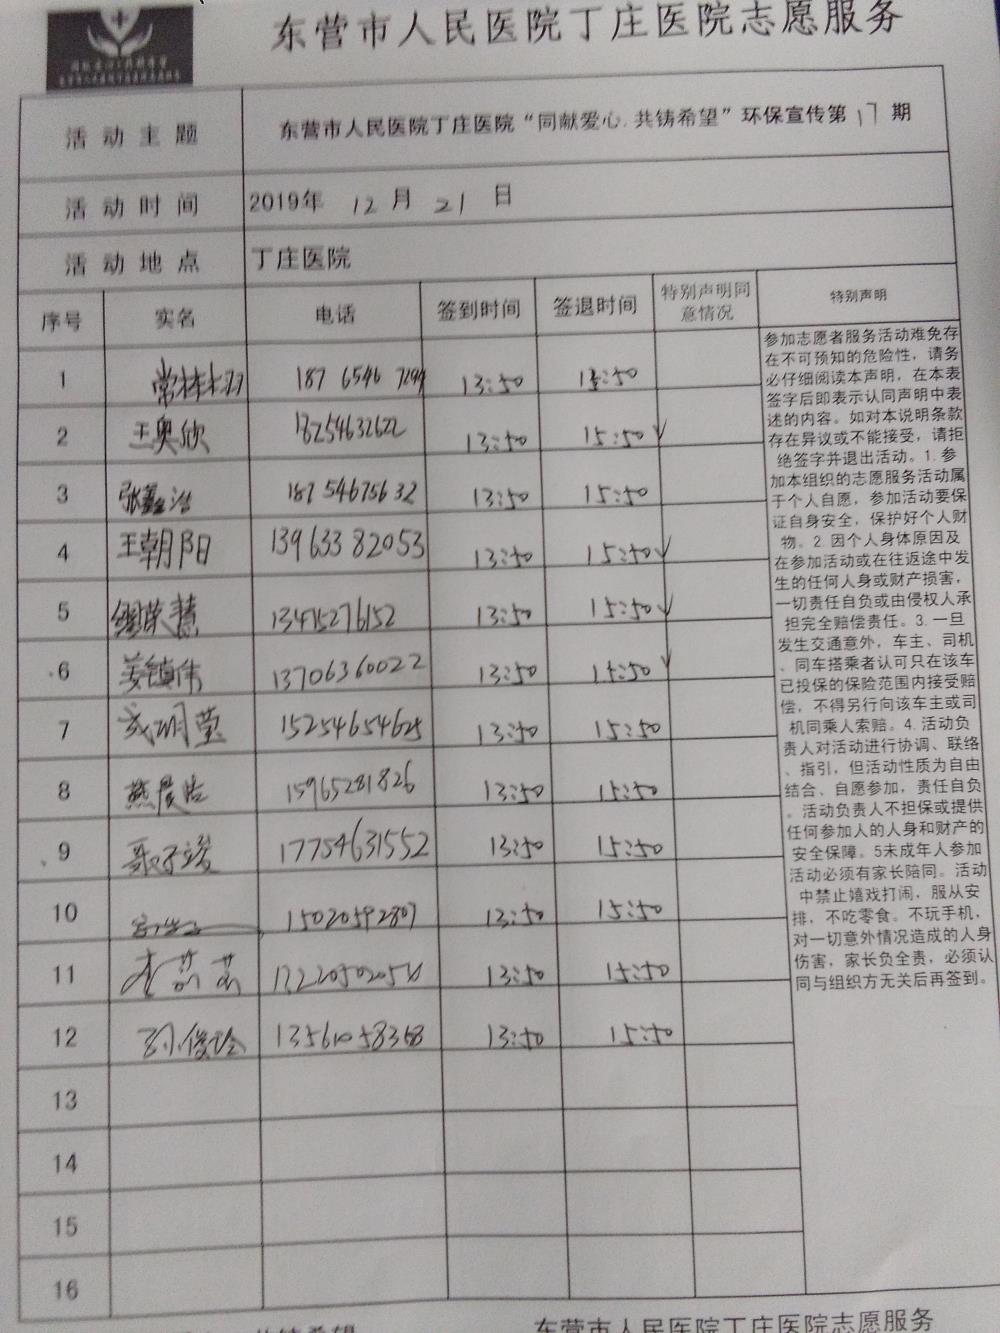 东营市人民医院丁庄医院志愿服务
活动主题 东营市人民医院丁庄医院“同献爱心.共铸希望”环保宣传第17期
活动时间 2019年 12 月 21 日
活动地点 丁庄医院
序号 实名 电话 签到时间 签退时间 特别声明同意情况 特别声明
1 187 6546 13:50 15:50
2 王奥欣 18254632622 13:50 15:50 √
3 张鑫浩 187 54675632 13:50 15:50
4 王朝阳 13963382053 13:50 15:50 √
5 荣慧 13475276152 13:50 15:50 √
6 姜镇伟 13706360022 13:50 15:50 √
7 成明莹 15254654625 13:50 15:50
8 燕晨浩 15965281826 13:50 15:50
9 17754631552 13:50 15:50
10 15020592807 13:50 15:50
11 李 13:50 15:50
12 孙俊玲 13561058368 13:50 15:50
13
14
15
16
参加志愿者服务活动难免存
在不可预知的危险性，请务
必仔细阅读本声明，在本表
签字后即表示认同声明中表
述的内容。如对本说明条款
存在异议或不能接受，请拒
绝签字并退出活动。1. 参
加本组织的志愿服务活动属
于个人自愿，参加活动要保
证自身安全，保护好个人财
物。2. 因个人身体原因及
在参加活动或在往返途中发
生的任何人身或财产损害，
一切责任自负或由侵权人承
担完全赔偿责任。3. 一旦
发生交通意外，车主、司机
、同车搭乘者认可只在该车
已投保的保险范围内接受赔
偿，不得另行向该车主或司
机同乘人索赔。4. 活动负
责人对活动进行协调、联络
、指引，但活动性质为自由
结合、自愿参加，责任自负
。活动负责人不担保或提供
任何参加人的人身和财产的
安全保障。5未成年人参加
活动必须有家长陪同。活动
中禁止嬉戏打闹，服从安
排，不吃零食。不玩手机，
对一切意外情况造成的人身
伤害，家长负全责，必须认
同与组织方无关后再签到。
共铸希望 东营市人民医院丁庄医院志愿服务